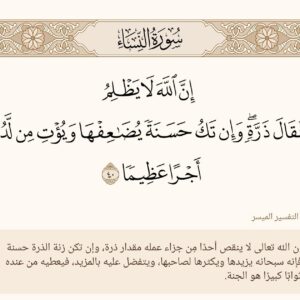 سُورَةُ النِّسَاءِ
إِنَّ ٱللَّهَ لَا يَظۡلِمُ
قَالَ ذَرَّةٖۖ وَإِن تَكُ حَسَنَةٗ يُضَٰعِفۡهَا وَيُؤۡتِ مِن لَّدُ
أَجۡرًا عَظِيمٗا ٤٠
التفسير الميسر
ن الله تعالى لا ينقص أحدًا مِن جزاء عمله مقدار ذرة، وإن تكن زنة الذرة حسنة
فإنه سبحانه يزيدها ويكثرها لصاحبها، ويتفضل عليه بالمزيد، فيعطيه من عنده
ثوابًا كبيرًا هو الجنة.